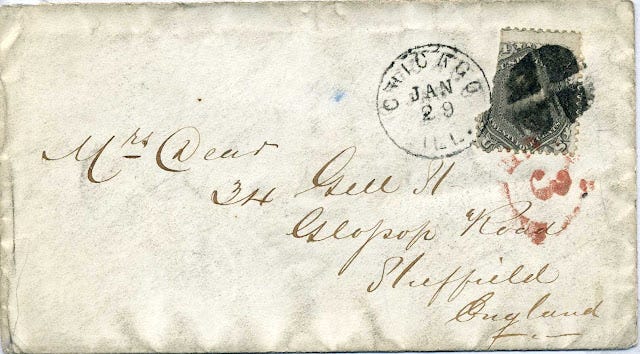 CHICAGO
JAN
29
ILL.
Mrs Dear
34 Gell St
Glossop Road
Sheffield
England
3